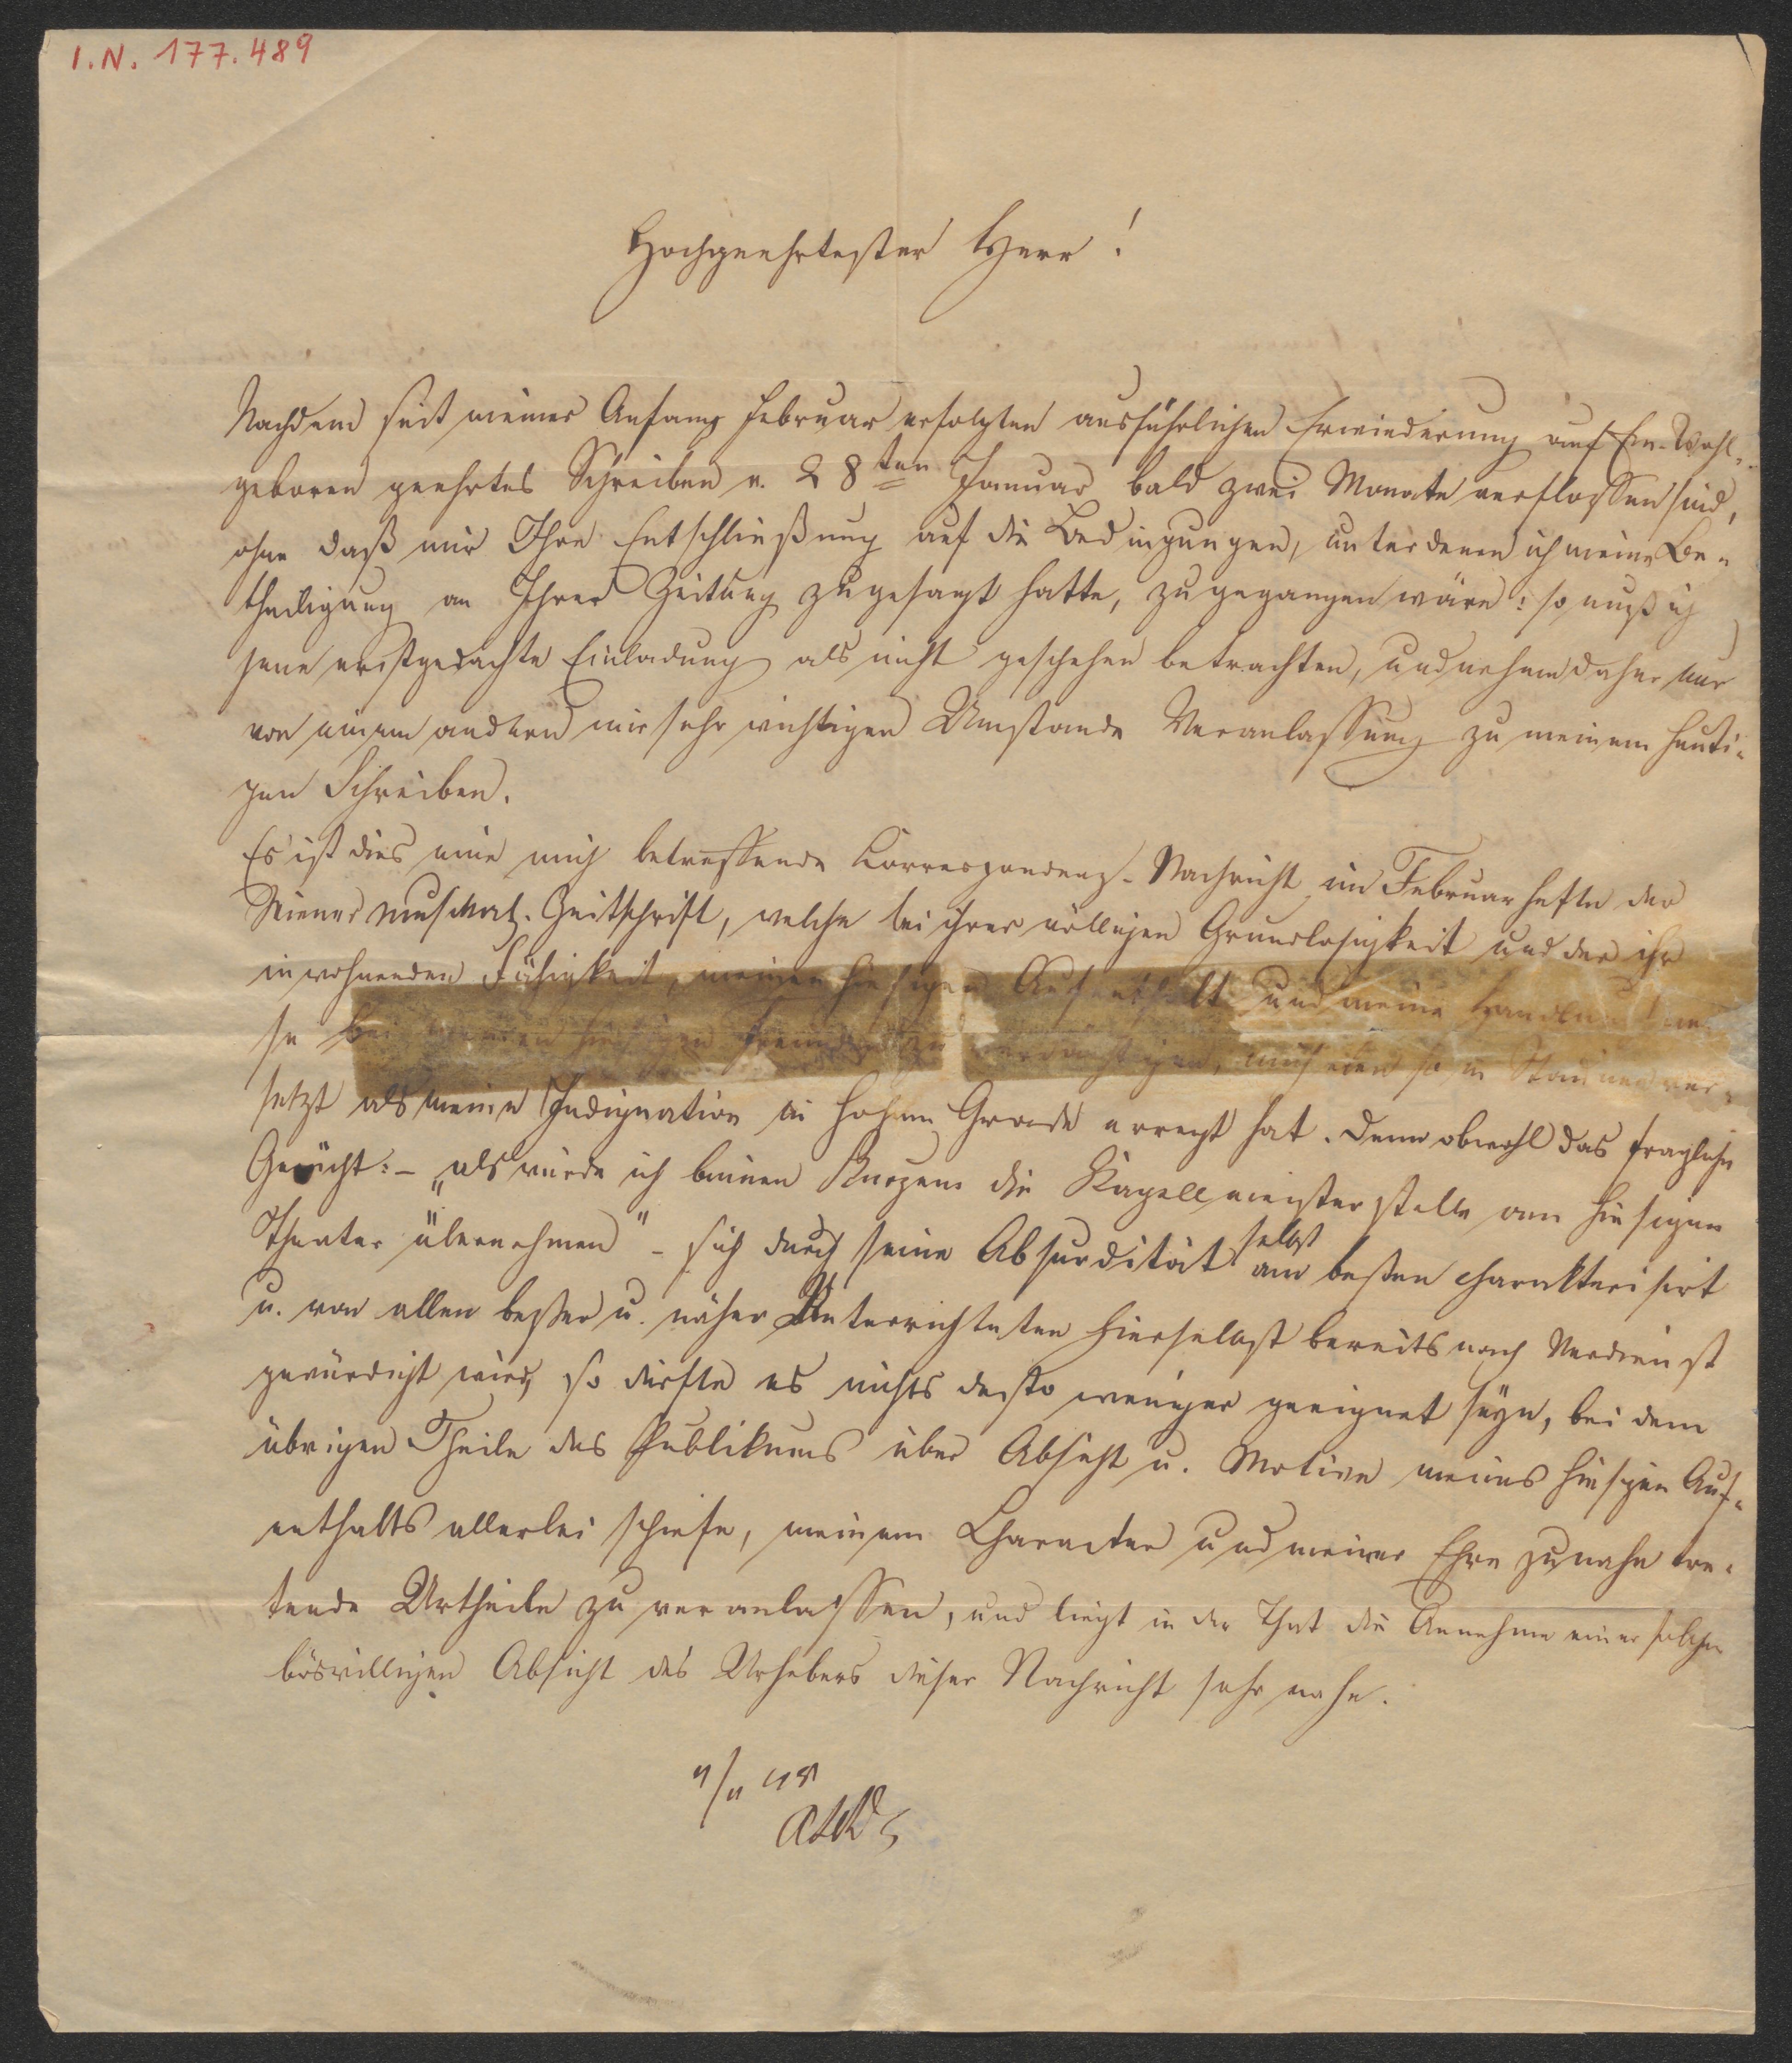 I.N. 177.489
Hochgeehrtester Herr!
Nachdem seit meiner Anfang Februar erfolgten ausführlichen Erwiederung auf Ew. Wohl-
geboren geehrtes Schreiben v. 28ten Januar bald zwei Monate verflossen sind,
ohne daß mir Ihre Entschließung auf die Bedingungen, unter denen ich meine Be-
theiligung an Ihrer Zeitung zugesagt hatte, zugegangen wäre: so muß ich
jene erstgedachte Einladung als nicht geschehen betrachten, und nehme daher nur
von einem andern mir sehr wichtigen Umstande Veranlassung zu meinem heuti-
gen Schreiben.
Es ist dies eine mich betreffende Correspondenz-Nachricht im Februarhefte der
Wiener Zeitschrift, welche bei ihrer völligen Grundlosigkeit und der ihr
inwohnenden Fähigkeit, meinen hiesigen Aufenthalt und meine
se bei meinen hiesigen Freunden zu verdächtigen, mich eben so in Staunen ver-
setzt als meine Indignation in hohem Grade erregt hat. Denn obwohl das fragliche
Gerücht: – „als würde ich binnen Kurzem die Kapellmeisterstelle am hiesigen
Theater übernehmen" – sich durch seine Absurdität selbst am besten charakterisirt
u. von allen besser u. näher Unterrichteten hierselbst bereits nach Verdienst
gewürdigt wird, so dürfte es nichts desto weniger geeignet seyn, bei dem
übrigen Theile des Publikums über Absicht u. Motive meines hiesigen Auf-
enthalts allerlei schiefe, meinem Character und meiner Ehre zunahe tre-
tende Urtheile zu veranlassen, und liegt in der That die Annahme einer solchen
böswilligen Absicht des Urhebers dieser Nachricht sehr nahe.